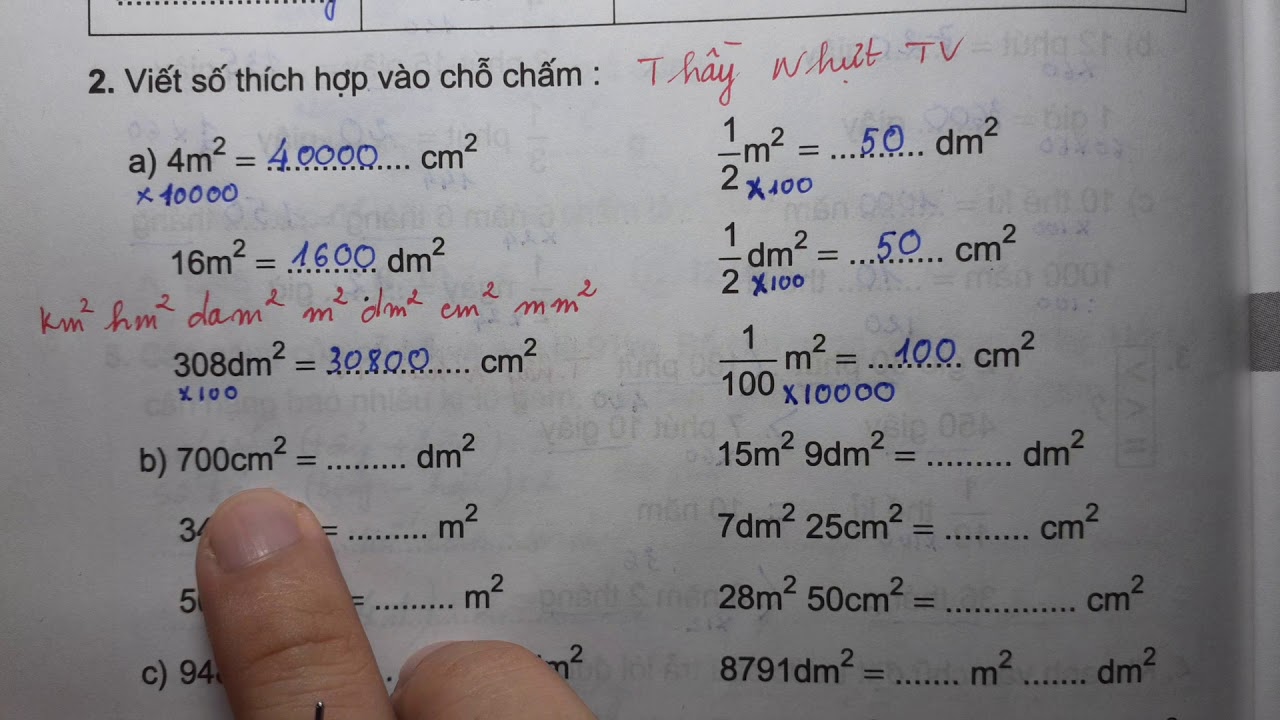 2. Viết số thích hợp vào chỗ chấm : Thầy Nhựt TV
a) 4m² = 40000 cm²
×10000
1/2 m² = 50 dm²
×100
16m² = 1600 dm²
1/2 dm² = 50 cm²
×100
km² hm² dam² m² dm² cm² mm²
308dm² = 30800 cm²
×100
1/100 m² = 100 cm²
×10000
b) 700cm² = ......... dm²
15m² 9dm² = ......... dm²
= ......... m²
7dm² 25cm² = ......... cm²
= ......... m²
28m² 50cm² = .............. cm²
c)
8791dm² = ....... m² ....... dm²